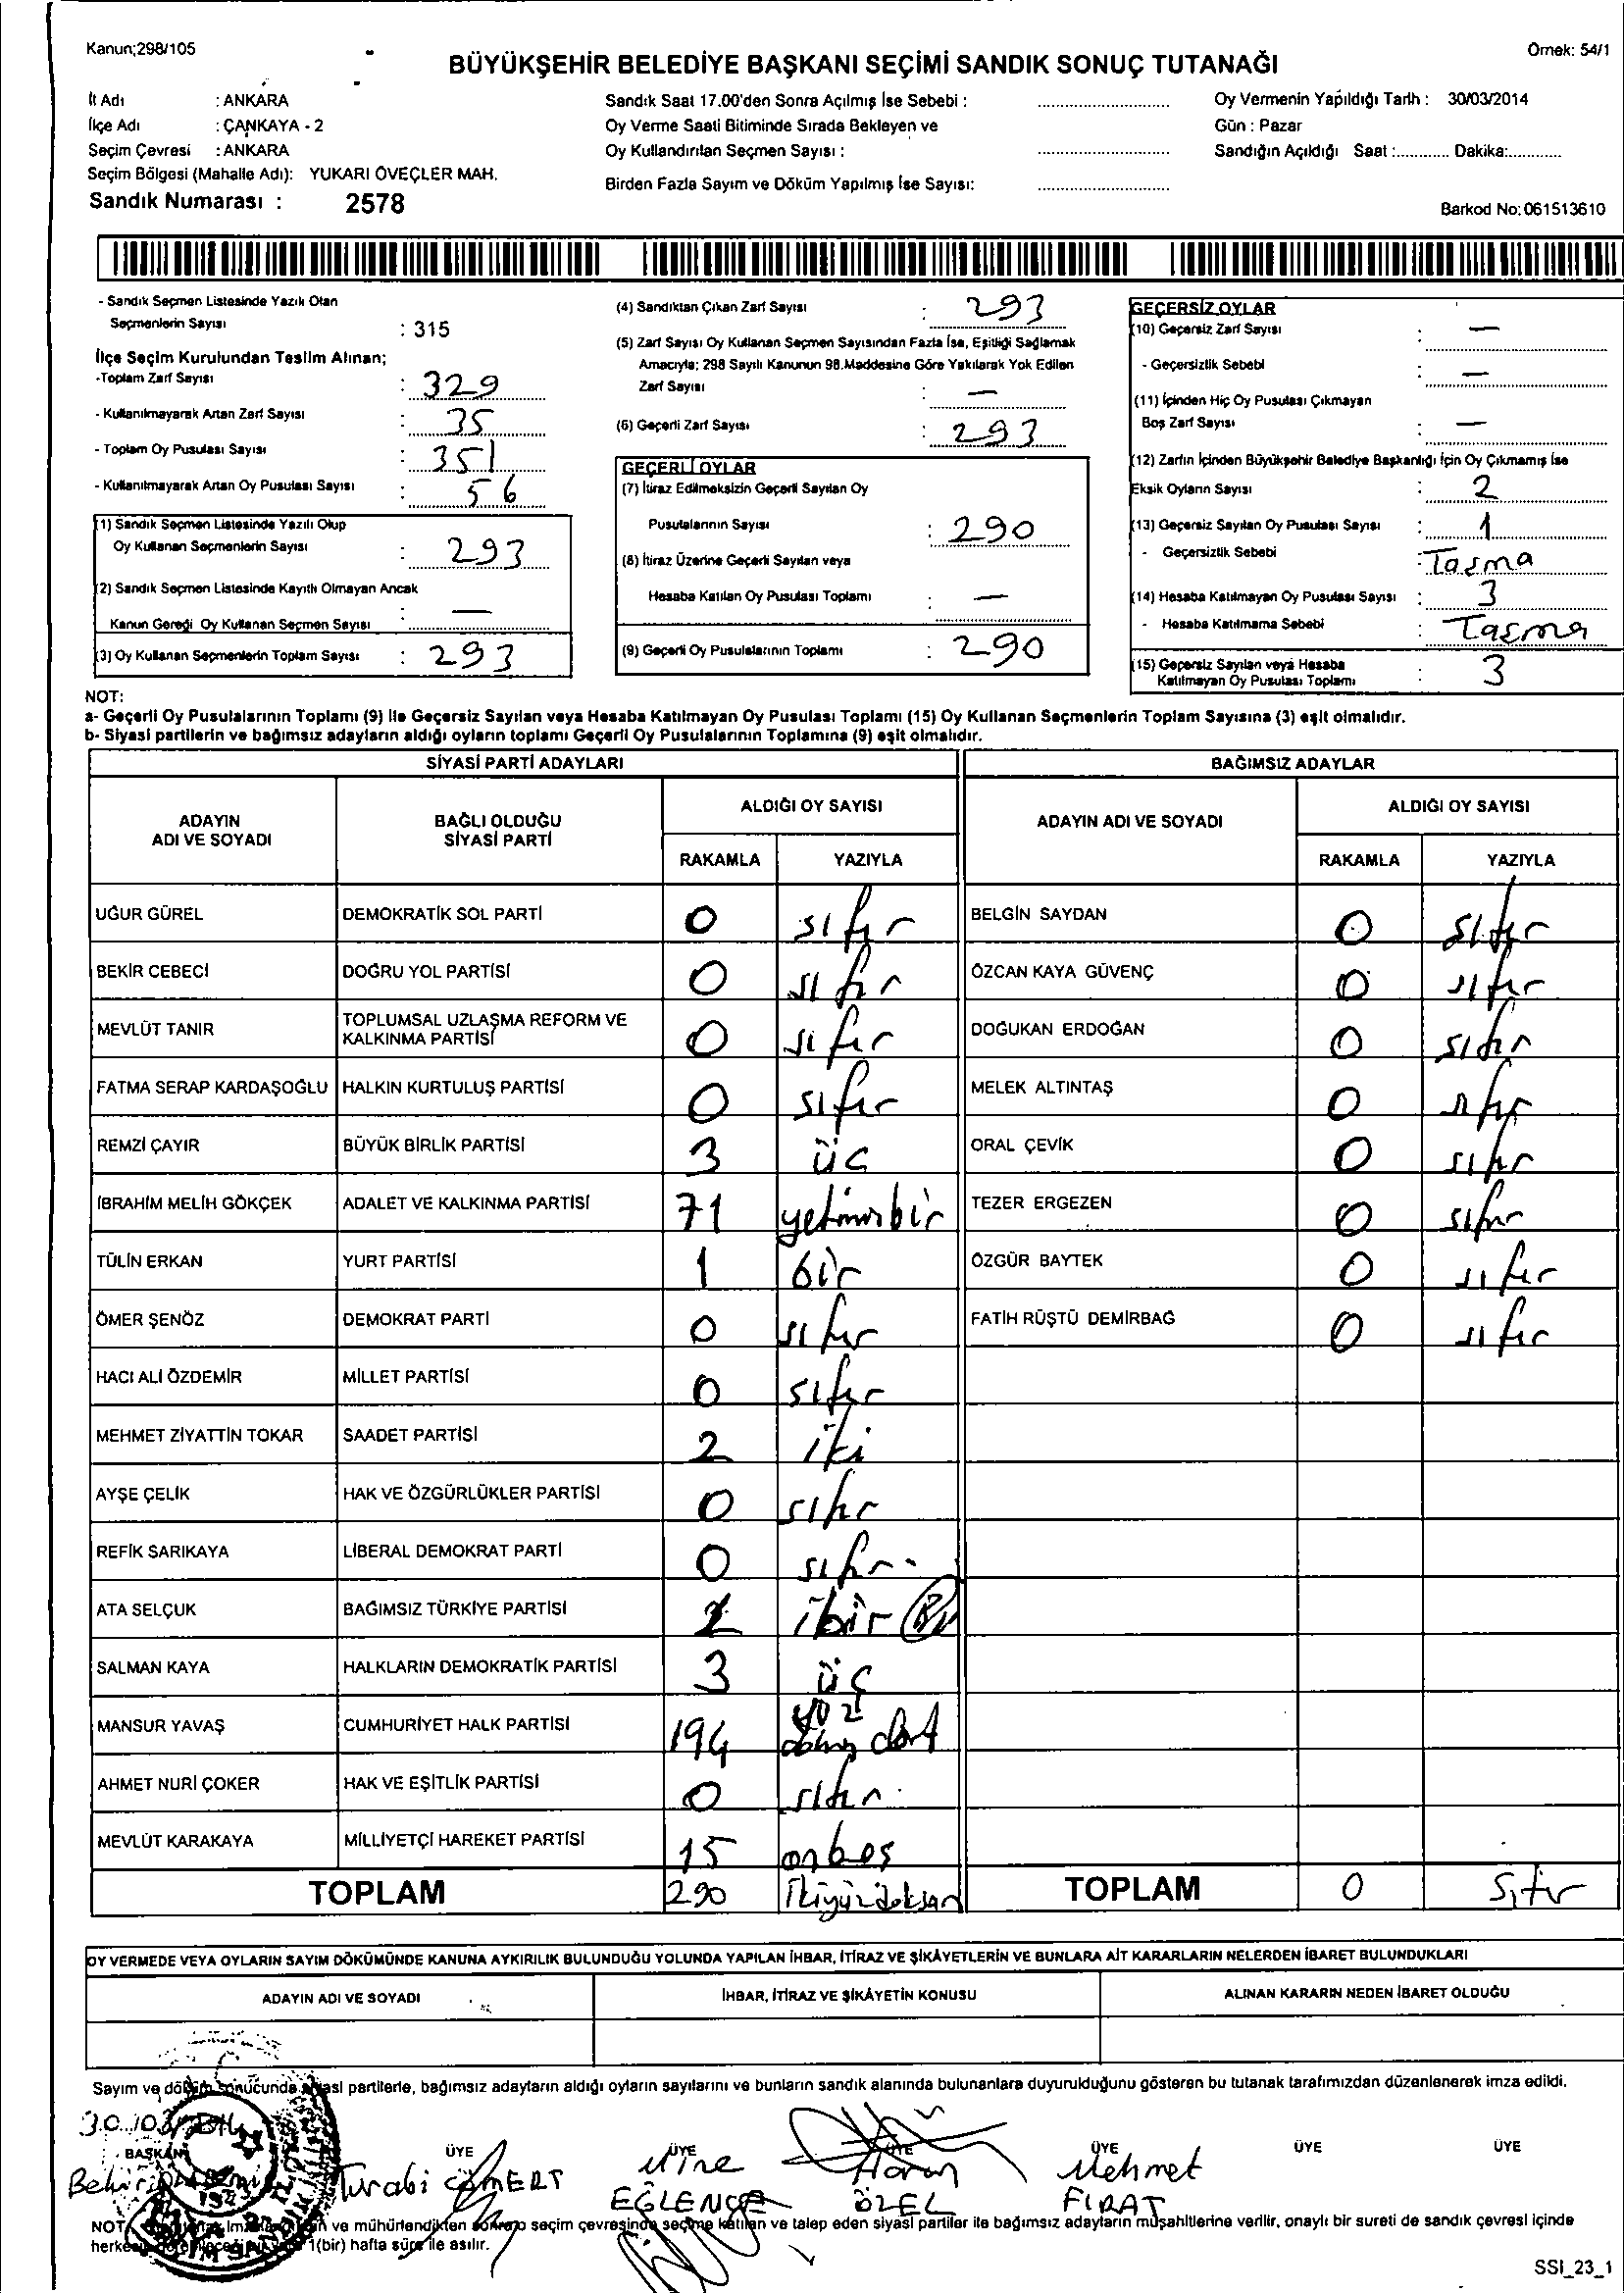 Kanun;298/105
Örnek: 54/1
BÜYÜKŞEHİR BELEDİYE BAŞKANI SEÇİMİ SANDIK SONUÇ TUTANAĞI
İl Adı : ANKARA
İlçe Adı : ÇANKAYA - 2
Seçim Çevresi : ANKARA
Seçim Bölgesi (Mahalle Adı): YUKARI ÖVEÇLER MAH.
Sandık Numarası : 2578
Sandık Saat 17.00'den Sonra Açılmış İse Sebebi :
Oy Verme Saati Bitiminde Sırada Bekleyen ve
Oy Kullandırılan Seçmen Sayısı :
Birden Fazla Sayım ve Döküm Yapılmış İse Sayısı:
Oy Vermenin Yapıldığı Tarih : 30/03/2014
Gün : Pazar
Sandığın Açıldığı Saat :............ Dakika:............
Barkod No: 061513610
- Sandık Seçmen Listesinde Yazılı Olan
Seçmenlerin Sayısı : 315
İlçe Seçim Kurulundan Teslim Alınan;
-Toplam Zarf Sayısı : 329
- Kullanılmayarak Artan Zarf Sayısı : 35
- Toplam Oy Pusulası Sayısı : 351
- Kullanılmayarak Artan Oy Pusulası Sayısı : 56
(1) Sandık Seçmen Listesinde Yazılı Olup
Oy Kullanan Seçmenlerin Sayısı : 293
(2) Sandık Seçmen Listesinde Kayıtlı Olmayan Ancak
Kanun Gereği Oy Kullanan Seçmen Sayısı : —
(3) Oy Kullanan Seçmenlerin Toplam Sayısı : 293
(4) Sandıktan Çıkan Zarf Sayısı : 293
(5) Zarf Sayısı Oy Kullanan Seçmen Sayısından Fazla İse, Eşitliği Sağlamak
Amacıyla; 298 Sayılı Kanunun 98.Maddesine Göre Yakılarak Yok Edilen
Zarf Sayısı : —
(6) Geçerli Zarf Sayısı : 293
GEÇERLİ OYLAR
(7) İtiraz Edilmeksizin Geçerli Sayılan Oy
Pusulalarının Sayısı : 290
(8) İtiraz Üzerine Geçerli Sayılan veya
Hesaba Katılan Oy Pusulası Toplamı : —
(9) Geçerli Oy Pusulalarının Toplamı : 290
GEÇERSİZ OYLAR
(10) Geçersiz Zarf Sayısı : —
- Geçersizlik Sebebi : —
(11) İçinden Hiç Oy Pusulası Çıkmayan
Boş Zarf Sayısı : —
(12) Zarfın İçinden Büyükşehir Belediye Başkanlığı İçin Oy Çıkmamış İse
Eksik Oyların Sayısı : 2
(13) Geçersiz Sayılan Oy Pusulası Sayısı : 1
- Geçersizlik Sebebi : Taşma
(14) Hesaba Katılmayan Oy Pusulası Sayısı : 3
- Hesaba Katılmama Sebebi : Taşma
(15) Geçersiz Sayılan veya Hesaba
Katılmayan Oy Pusulası Toplamı : 3
NOT:
a- Geçerli Oy Pusulalarının Toplamı (9) İle Geçersiz Sayılan veya Hesaba Katılmayan Oy Pusulası Toplamı (15) Oy Kullanan Seçmenlerin Toplam Sayısına (3) eşit olmalıdır.
b- Siyasi partilerin ve bağımsız adayların aldığı oyların toplamı Geçerli Oy Pusulalarının Toplamına (9) eşit olmalıdır.
SİYASİ PARTİ ADAYLARI
ADAYIN ADI VE SOYADI
BAĞLI OLDUĞU SİYASİ PARTİ
ALDIĞI OY SAYISI
RAKAMLA YAZIYLA
UĞUR GÜREL DEMOKRATİK SOL PARTİ 0 sıfır
BEKİR CEBECİ DOĞRU YOL PARTİSİ 0 sıfır
MEVLÜT TANIR TOPLUMSAL UZLAŞMA REFORM VE KALKINMA PARTİSİ 0 sıfır
FATMA SERAP KARDAŞOĞLU HALKIN KURTULUŞ PARTİSİ 0 sıfır
REMZİ ÇAYIR BÜYÜK BİRLİK PARTİSİ 3 üç
İBRAHİM MELİH GÖKÇEK ADALET VE KALKINMA PARTİSİ 71 yetmişbir
TÜLİN ERKAN YURT PARTİSİ 1 bir
ÖMER ŞENÖZ DEMOKRAT PARTİ 0 sıfır
HACI ALİ ÖZDEMİR MİLLET PARTİSİ 0 sıfır
MEHMET ZİYATTİN TOKAR SAADET PARTİSİ 2 iki
AYŞE ÇELİK HAK VE ÖZGÜRLÜKLER PARTİSİ 0 sıfır
REFİK SARIKAYA LİBERAL DEMOKRAT PARTİ 0 sıfır
ATA SELÇUK BAĞIMSIZ TÜRKİYE PARTİSİ 1 bir
SALMAN KAYA HALKLARIN DEMOKRATİK PARTİSİ 3 üç
MANSUR YAVAŞ CUMHURİYET HALK PARTİSİ 194 yüz doksan dört
AHMET NURİ ÇOKER HAK VE EŞİTLİK PARTİSİ 0 sıfır
MEVLÜT KARAKAYA MİLLİYETÇİ HAREKET PARTİSİ 15 onbeş
TOPLAM 290 İkiyüzdoksan
BAĞIMSIZ ADAYLAR
ADAYIN ADI VE SOYADI
ALDIĞI OY SAYISI
RAKAMLA YAZIYLA
BELGİN SAYDAN 0 sıfır
ÖZCAN KAYA GÜVENÇ 0 sıfır
DOĞUKAN ERDOĞAN 0 sıfır
MELEK ALTINTAŞ 0 sıfır
ORAL ÇEVİK 0 sıfır
TEZER ERGEZEN 0 sıfır
ÖZGÜR BAYTEK 0 sıfır
FATİH RÜŞTÜ DEMİRBAĞ 0 sıfır
TOPLAM 0 Sıfır
OY VERMEDE VEYA OYLARIN SAYIM DÖKÜMÜNDE KANUNA AYKIRILIK BULUNDUĞU YOLUNDA YAPILAN İHBAR, İTİRAZ VE ŞİKÂYETLERİN VE BUNLARA AİT KARARLARIN NELERDEN İBARET BULUNDUKLARI
ADAYIN ADI VE SOYADI
İHBAR, İTİRAZ VE ŞİKÂYETİN KONUSU
ALINAN KARARIN NEDEN İBARET OLDUĞU
Sayım ve döküm sonucunda siyasi partilerle, bağımsız adayların aldığı oyların sayılarını ve bunların sandık alanında bulunanlara duyurulduğunu gösteren bu tutanak tarafımızdan düzenlenerek imza edildi.
30/03/2014
BAŞKAN ÜYE ÜYE ÜYE ÜYE ÜYE ÜYE
Turabi CÖMERT
Mine EĞLENCE
Harun ÖZEL
Mehmet FIRAT
NOT: ve mühürlendikten sonra seçim çevresinde seçime katılan ve talep eden siyasi partiler ile bağımsız adayların müşahitlerine verilir, onaylı bir sureti de sandık çevresi içinde
1(bir) hafta süre ile asılır.
SSI_23_1